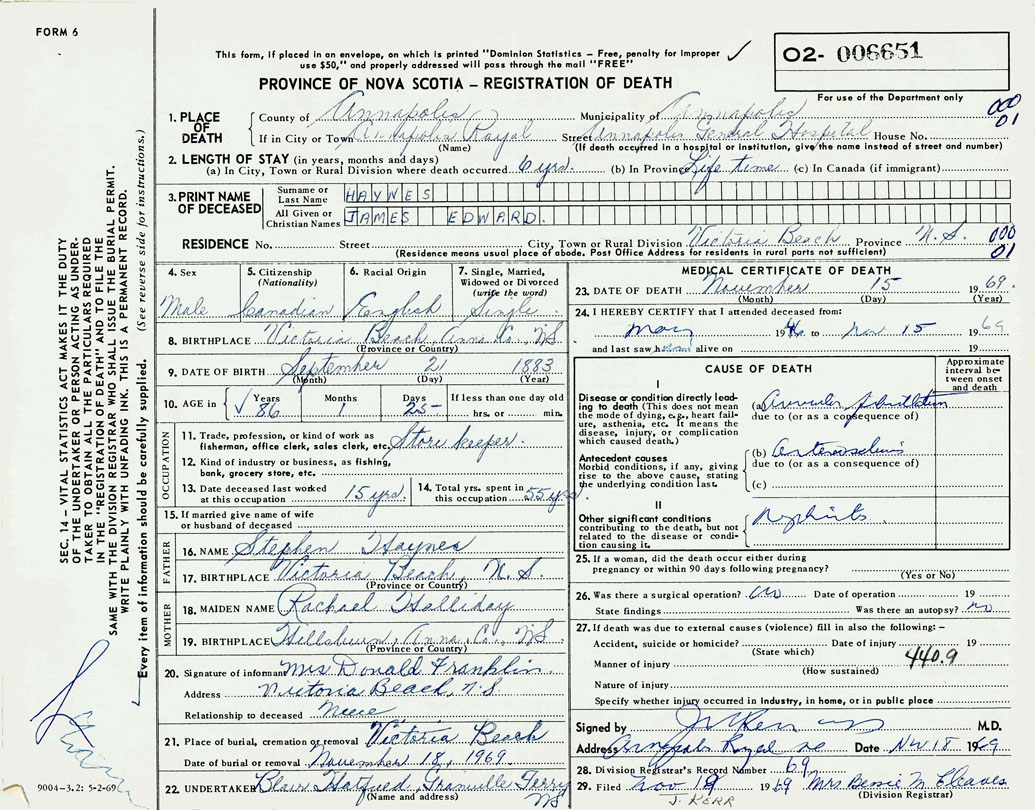 FORM 6
This form, if placed in an envelope, on which is printed "Dominion Statistics – Free, penalty for improper
use $50," and properly addressed will pass through the mail "FREE"
PROVINCE OF NOVA SCOTIA – REGISTRATION OF DEATH
02- 006651
For use of the Department only
000
01
1. PLACE OF DEATH
County of Annapolis Municipality of Annapolis
If in City or Town Annapolis Royal Street Annapolis General Hospital House No.
(Name) (If death occurred in a hospital or institution, give the name instead of street and number)
2. LENGTH OF STAY (in years, months and days)
(a) In City, Town or Rural Division where death occurred 6 yrs. (b) In Province Life time (c) In Canada (if immigrant)
3. PRINT NAME OF DECEASED
Surname or Last Name HAYNES
All Given or Christian Names JAMES EDWARD.
RESIDENCE No. Street City, Town or Rural Division Victoria Beach Province N.S. 000
01
(Residence means usual place of abode. Post Office Address for residents in rural parts not sufficient)
4. Sex
Male
5. Citizenship
(Nationality)
Canadian
6. Racial Origin
English
7. Single, Married,
Widowed or Divorced
(write the word)
Single
8. BIRTHPLACE Victoria Beach, Anna Co., NS
(Province or Country)
9. DATE OF BIRTH September 21 1883
(Month) (Day) (Year)
10. AGE in Years Months Days If less than one day old
86 1 25 hrs. or min.
OCCUPATION
11. Trade, profession, or kind of work as
fisherman, office clerk, sales clerk, etc. Store keeper.
12. Kind of industry or business, as fishing,
bank, grocery store, etc.
13. Date deceased last worked
at this occupation 15 yrs.
14. Total yrs. spent in
this occupation 55 yrs
15. If married give name of wife
or husband of deceased
FATHER
16. NAME Stephen Haynes
17. BIRTHPLACE Victoria Beach, N.S.
(Province or Country)
MOTHER
18. MAIDEN NAME Rachael Halliday
19. BIRTHPLACE Hillsburn, Anna. Co., NS
(Province or Country)
20. Signature of informant Mrs Donald Franklin.
Address Victoria Beach, N.S.
Relationship to deceased Niece
21. Place of burial, cremation or removal Victoria Beach
Date of burial or removal November 18, 1969.
22. UNDERTAKER Blair Granville Ferry
NS
(Name and address)
MEDICAL CERTIFICATE OF DEATH
23. DATE OF DEATH November 15 1969.
(Month) (Day) (Year)
24. I HEREBY CERTIFY that I attended deceased from:
May 19 to Nov 15 1969
and last saw h alive on 19
CAUSE OF DEATH
Approximate
interval be-
tween onset
and death
I
Disease or condition directly lead-
ing to death (This does not mean
the mode of dying, e.g., heart fail-
ure, asthenia, etc. It means the
disease, injury, or complication
which caused death.)
(a) Auricular fibrillation
due to (or as a consequence of)
Antecedent causes
Morbid conditions, if any, giving
rise to the above cause, stating
the underlying condition last.
(b) Arteriosclerosis
due to (or as a consequence of)
(c)
II
Other significant conditions
contributing to the death, but not
related to the disease or condi-
tion causing it.
Nephritis.
25. If a woman, did the death occur either during
pregnancy or within 90 days following pregnancy?
(Yes or No)
26. Was there a surgical operation? no Date of operation 19
State findings Was there an autopsy? no
27. If death was due to external causes (violence) fill in also the following: –
Accident, suicide or homicide? Date of injury 19
(State which)
440.9
Manner of injury
(How sustained)
Nature of injury
Specify whether injury occurred in Industry, in home, or in public place
Signed by M.D.
Address Annapolis Royal Date Nov 18 1969
28. Division Registrar's Record Number 69
29. Filed Nov 19 1969
J. KERR
(Division Registrar)
SEC. 14 – VITAL STATISTICS ACT MAKES IT THE DUTY
OF THE UNDERTAKER OR PERSON ACTING AS UNDER-
TAKER TO OBTAIN ALL THE PARTICULARS REQUIRED
IN THE "REGISTRATION OF DEATH" AND TO FILE THE
SAME WITH THE DIVISION REGISTRAR WHO SHALL ISSUE THE BURIAL PERMIT.
WRITE PLAINLY WITH UNFADING INK. THIS IS A PERMANENT RECORD.
Every item of information should be carefully supplied. (See reverse side for instructions.)
9004–3.2: 5-2-69